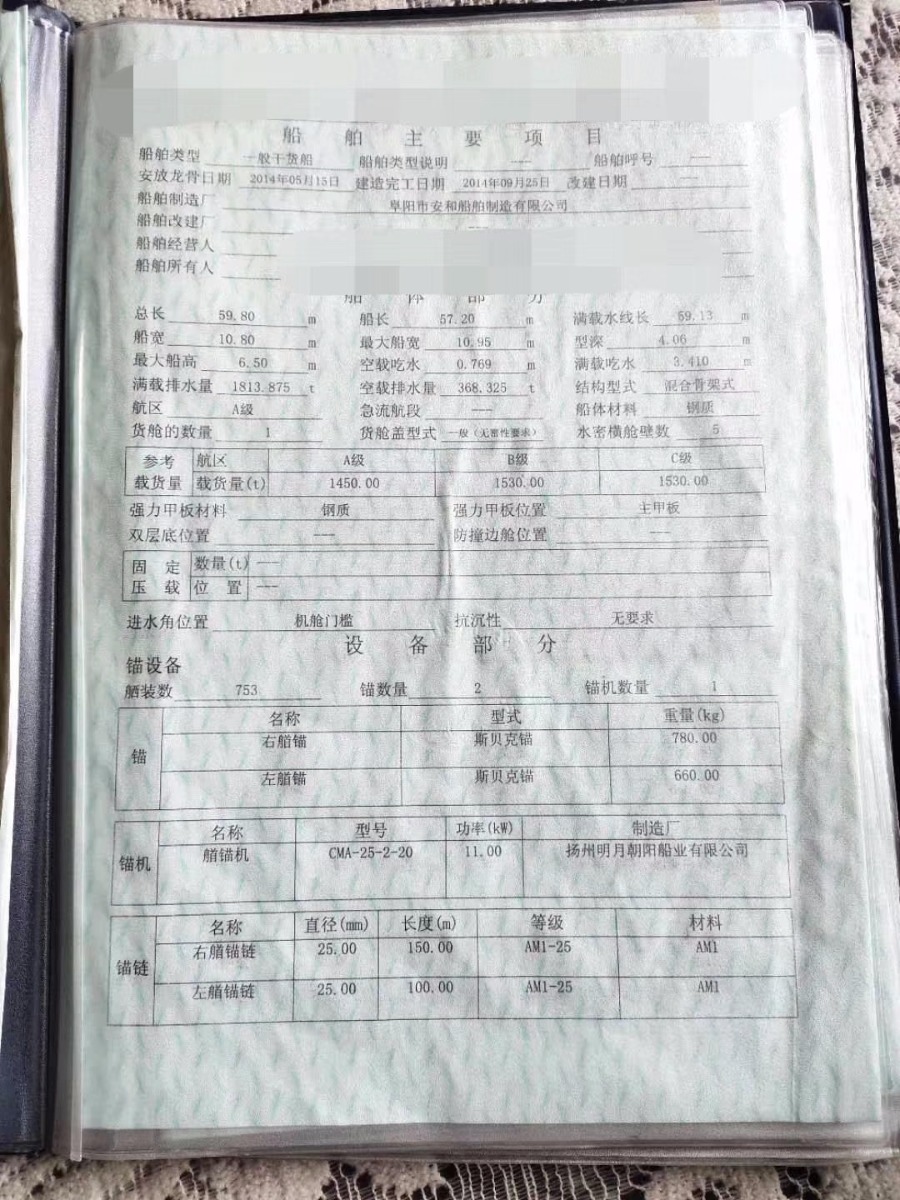 船舶主要项目
船舶类型 一般干货船 船舶类型说明 --- 船舶呼号 ---
安放龙骨日期 2014年05月15日 建造完工日期 2014年09月25日 改建日期 ---
船舶制造厂 阜阳市安和船舶制造有限公司
船舶改建厂 ---
船舶经营人
船舶所有人
船体部分
总长 59.80 m 船长 57.20 m 满载水线长 59.13 m
船宽 10.80 m 最大船宽 10.95 m 型深 4.06 m
最大船高 6.50 m 空载吃水 0.769 m 满载吃水 3.410 m
满载排水量 1813.875 t 空载排水量 368.325 t 结构型式 混合骨架式
航区 A级 急流航段 --- 船体材料 钢质
货舱的数量 1 货舱盖型式 一般（无密性要求） 水密横舱壁数 5
参考 航区 A级 B级 C级
载货量 载货量(t) 1450.00 1530.00 1530.00
强力甲板材料 钢质 强力甲板位置 主甲板
双层底位置 --- 防撞边舱位置 ---
固定 数量(t) ---
压载 位置 ---
进水角位置 机舱门槛 抗沉性 无要求
设备部分
锚设备
舾装数 753 锚数量 2 锚机数量 1
锚 名称 型式 重量(kg)
右艏锚 斯贝克锚 780.00
左艏锚 斯贝克锚 660.00
锚机 名称 型号 功率(kW) 制造厂
艏锚机 CMA-25-2-20 11.00 扬州明月朝阳船业有限公司
锚链 名称 直径(mm) 长度(m) 等级 材料
右艏锚链 25.00 150.00 AM1-25 AM1
左艏锚链 25.00 100.00 AM1-25 AM1